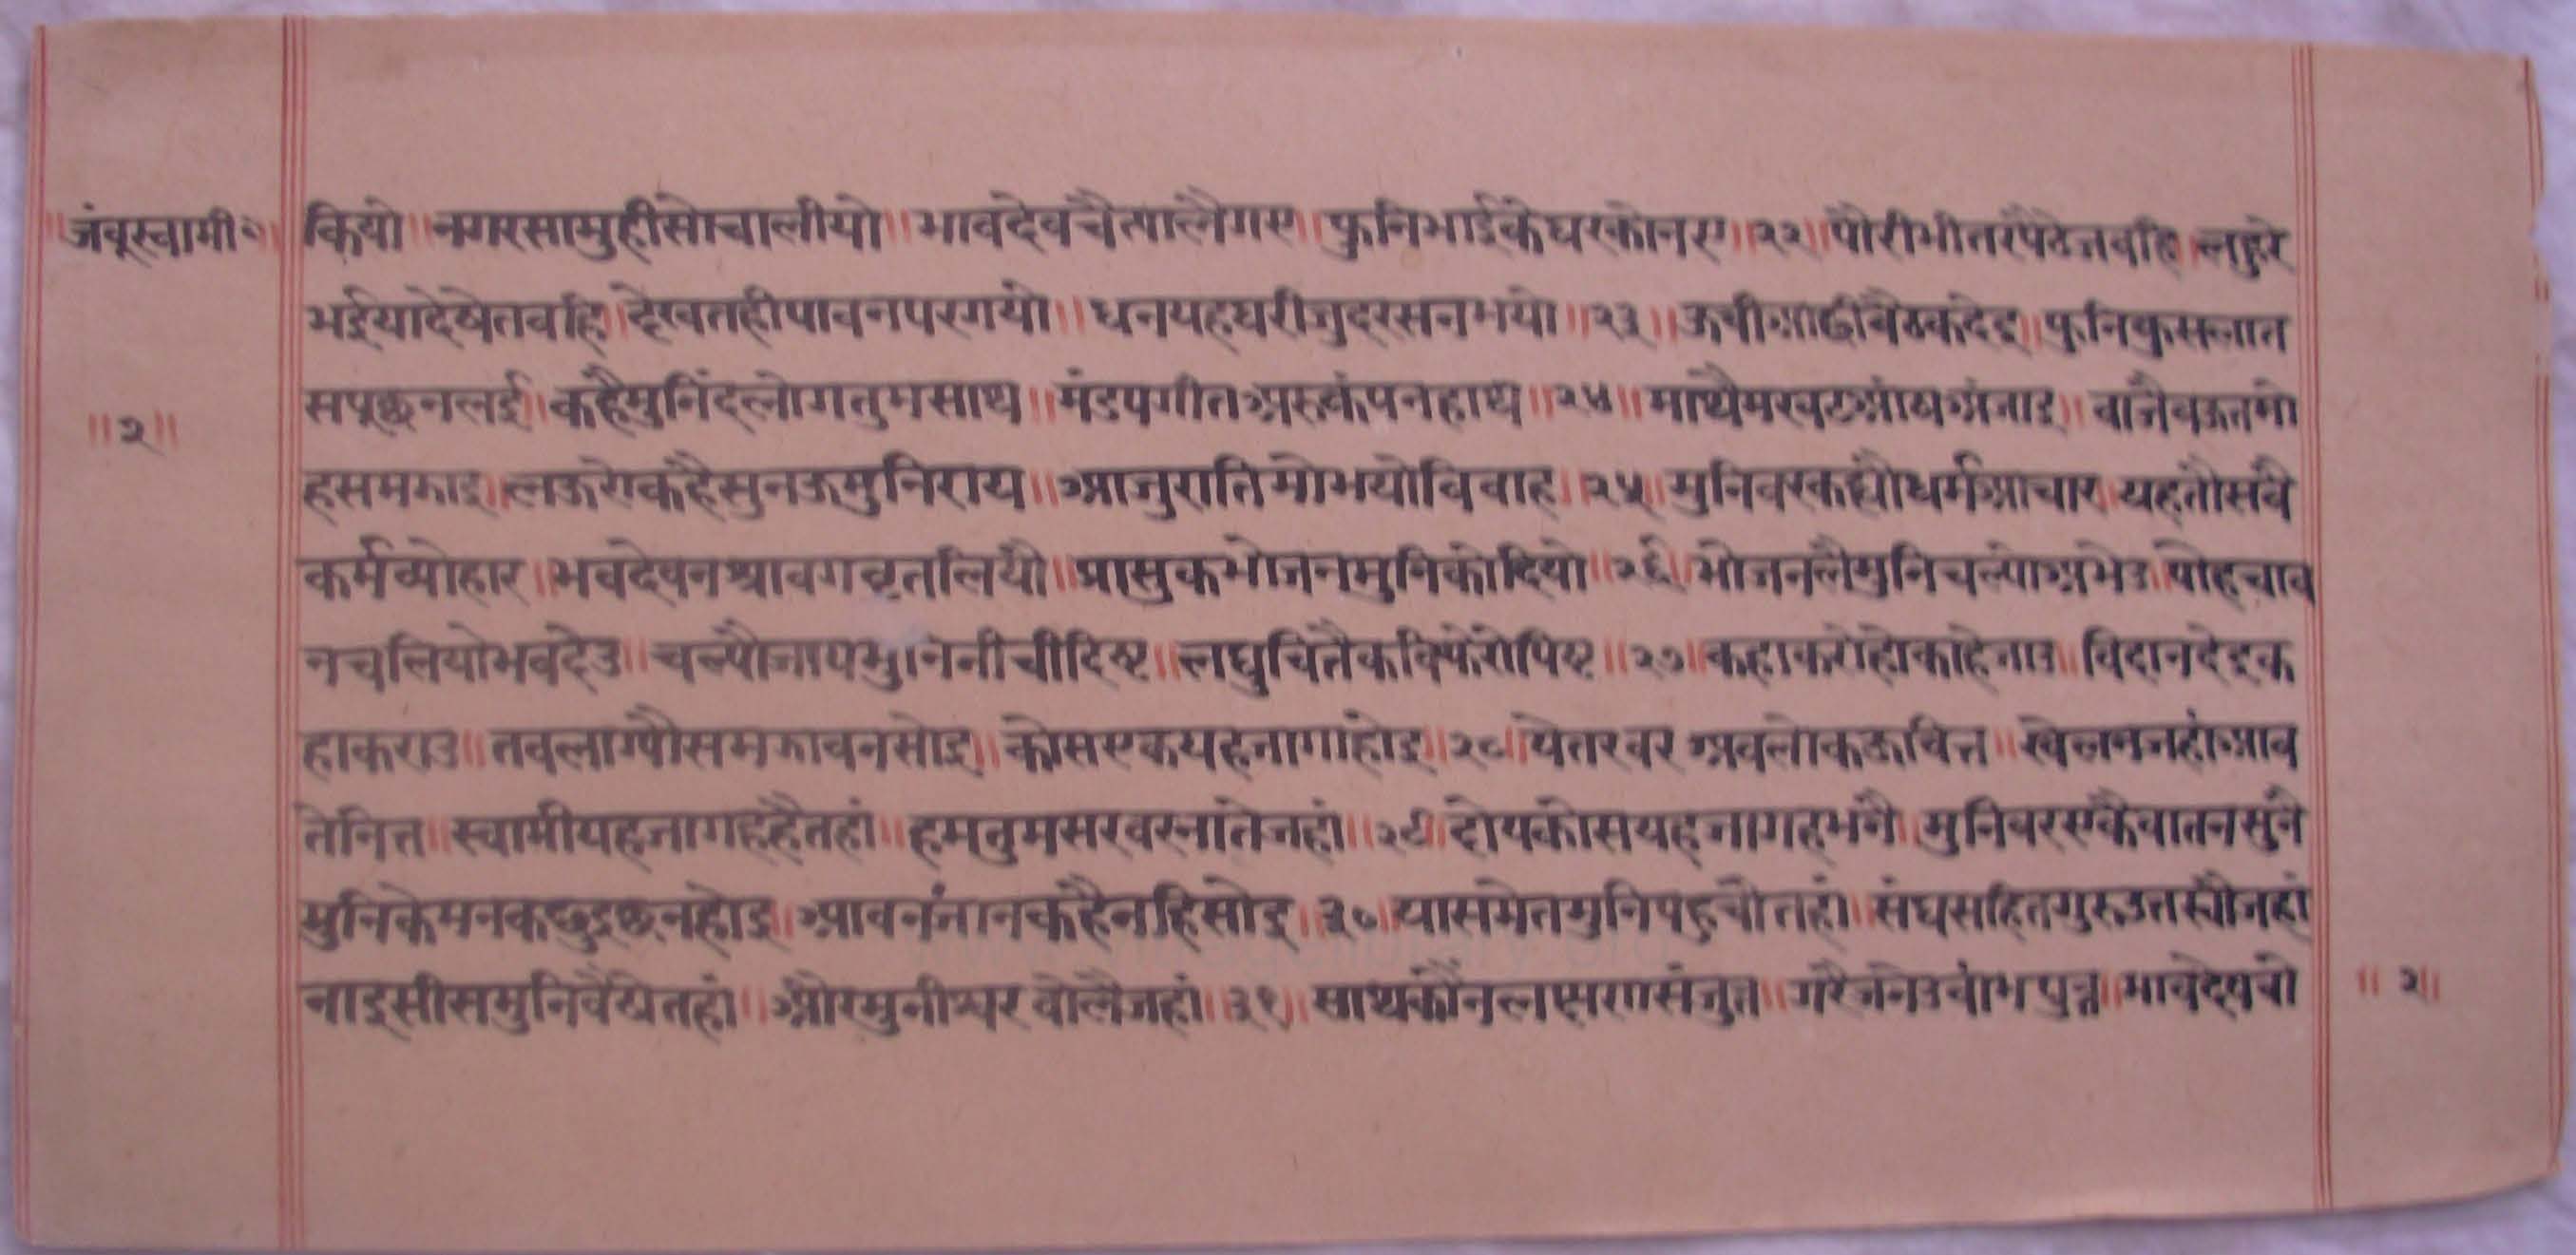 जंवूस्वामी॰॥ कियो॥नगरसामुहीसोचालीयो॥भावदेवचैतालैगए॥फुनिभाईकेघरकोनए॥२२॥पौरीभीतरपैठेजवहि॥लहुरे
भईयादेषेतवहि॥देखतहीपावनपरगयो॥धनयहघरीजुदरसनभयो॥२३॥ऊचीगाढीवैठकदेइ॥फुनिकुसलात
॥२॥ सपूछनलई॥कहैमुनिंदलोगतुमसाथ॥मंडपगीतअरुकंपनहाथ॥२४॥माथैमखट वाजैवऊतमो
हसमझाइ॥लऊरोकहैसुनऊमुनिराय॥आजुरातिमोभयोविवाह॥२५॥मुनिवरकह्यौधर्मआचार॥यहतौसवै
कर्मव्योहार॥भवदेवनश्रावगव्रतलियौ॥प्रासुकभोजनमुनिकोदियो॥२६॥भोजनलैमुनिचल्योअभेउ॥पोहचाव
नचलियोभवदेउ॥चल्यौजायमुनिनीचीदिष्ट॥लघुचितैकवफिरोपिष्ट॥२७॥कहाकरोहोकाहेजाउ॥विदानदेइक
हाकराउ॥तवलाग्यौसमझावनसोइ॥कोसएकयहजागाहोइ॥२८॥येतरवरअवलोकऊचित्त॥खेलनजहांआव
तेनित्त॥स्वामीयहजागहहैतहां॥हमतुमसरवरन्नातेजहां॥२९॥दोयकोसयहजागहभनै॥मुनिवरएकैवातनसुनै
मुनिकेमनकछुइछनहोइ॥आवनजानकहैनहिसोइ॥३०॥यासमेतमुनिपहुचौतहां॥संघसहितगुरुउतस्यौजहां
नाइसीसमुनिवैठेतहां॥औरमुनीश्वरवोलैजहां॥३१॥साथकौनलक्षणसंजुत॥गरैजनेउवांभपुत्र॥भावदेववो ॥२॥